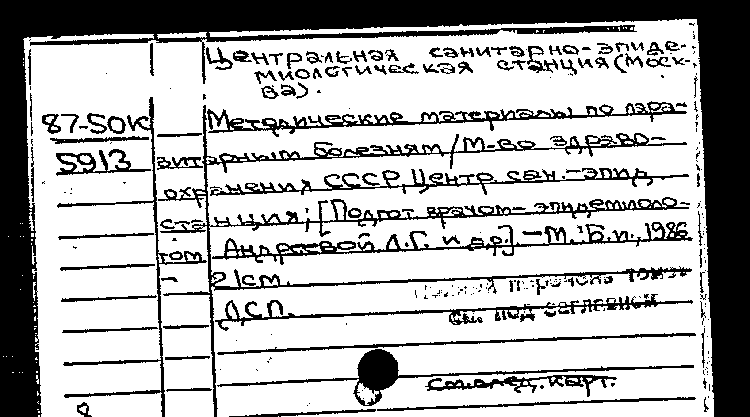 Центральная санитарно-эпиде-
миологическая станция (Моск-
ва).
87-50К Методические материалы по пара-
5913 зитарным болезням / М-во здраво-
охранения СССР, Центр. сан.-эпид.
станция; [Подгот. врачом-эпидемиоло-
гом Андреевой Л.Г. и др.] - М.: Б.и., 1986
- 21 см.
ДСП.
Полный перечень томов
см. под заглавием
карт.